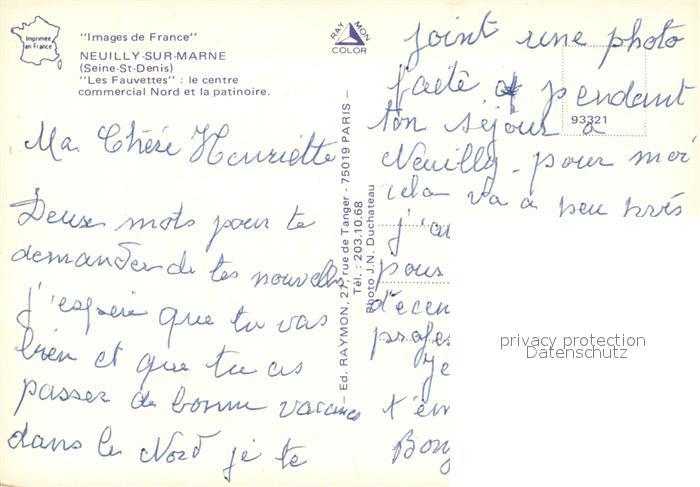 Imprimée
en France
"Images de France"
NEUILLY-SUR-MARNE
(Seine-St-Denis)
"Les Fauvettes" : le centre
commercial Nord et la patinoire.
RAYMON
COLOR
Ma Chère Henriette
Deux mots pour te
demander de tes nouvelles
j'espère que tu vas
bien et que tu as
passer de bonne vacances
dans le Nord je te
— Ed. RAYMON, 27, rue de Tanger - 75019 PARIS —
Tél. : 203.10.68
Photo J.N. Duchateau
joint une photo
faite pendant
93321
ton séjour a
Neuilly - pour moi
cela va a peu près
j'ai
pous
d'écen
profes
Je
t'em
Bon
privacy protection
Datenschutz